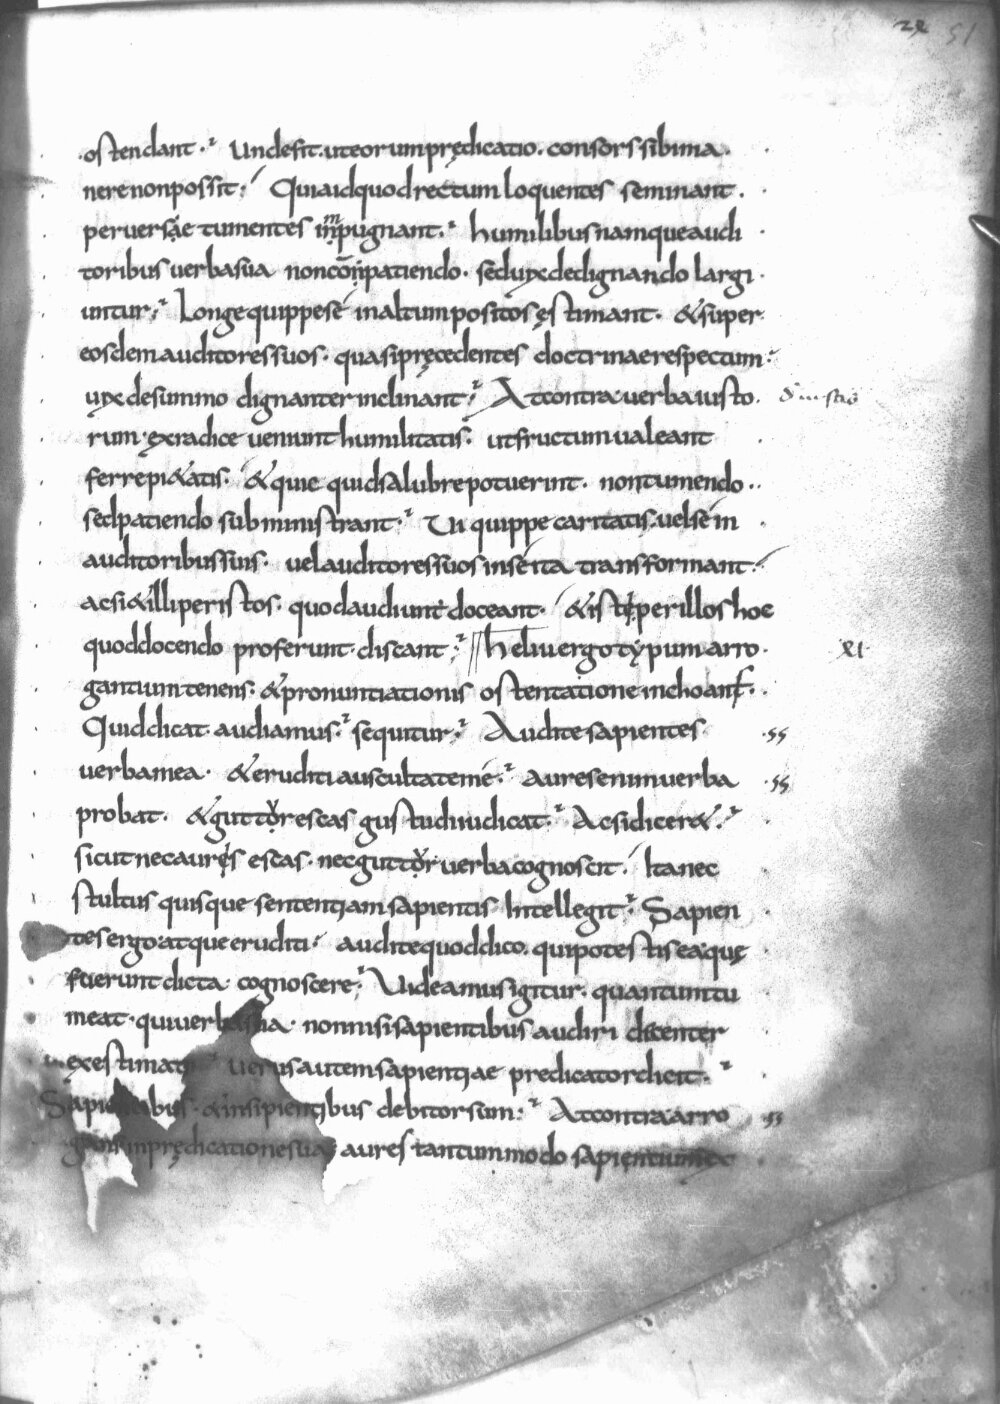 28 51
ostendant. Unde fit. ut eorum prędicatio. consors sibi ma
nere non possit; Quia id quod rectum loquentes seminant.
perversae tumentes inpugnant. humilibus namque audi
toribus verba sua non conpatiendo. sed vix dedignando largi
untur; Longe quippe se in altum positos ęstimant. & super
eosdem auditores suos. quasi pręcedentes doctrinae respectum
vix de summo dignanter inclinant; At contra verba iusto
rum ex radice veniunt humilitatis. ut fructum valeant
ferre pi&atis. & quae quid salubre potuerint. non tumendo
sed patiendo subministrant. Vi quippe caritatis. vel se in
auditoribus suis. vel auditores suos in se ita transformant;
ac si & illi per istos. quod audiunt doceant. & isti per illos hoc
quod docendo proferunt discant; heliu ergo typum arro
XI
gantium tenens. & pronuntiationis ostentatione inchoans.
Quid dicat audiamus. sequitur; Audite sapientes
verba mea. & eruditi auscultate me. auris enim verba
probat. & guttur escas gustu diiudicat. Ac si dicer&.
sicut nec auris escas. nec guttur verba cognoscit. Ita nec
stultus quisque sententiam sapientis intellegit. Sapien
tes ergo atque eruditi. audite quod dico. qui potestis ea quę
fuerunt dicta cognoscere; Videamus igitur. quantum tu
meat. qui verba sua. non nisi sapientibus audiri decenter
exestimat verus autem sapientiae predicator dicit.
Sapientibus. & insipientibus debitor sum. At contra arro
gans in prędicatione sua aures tantummodo sapientium